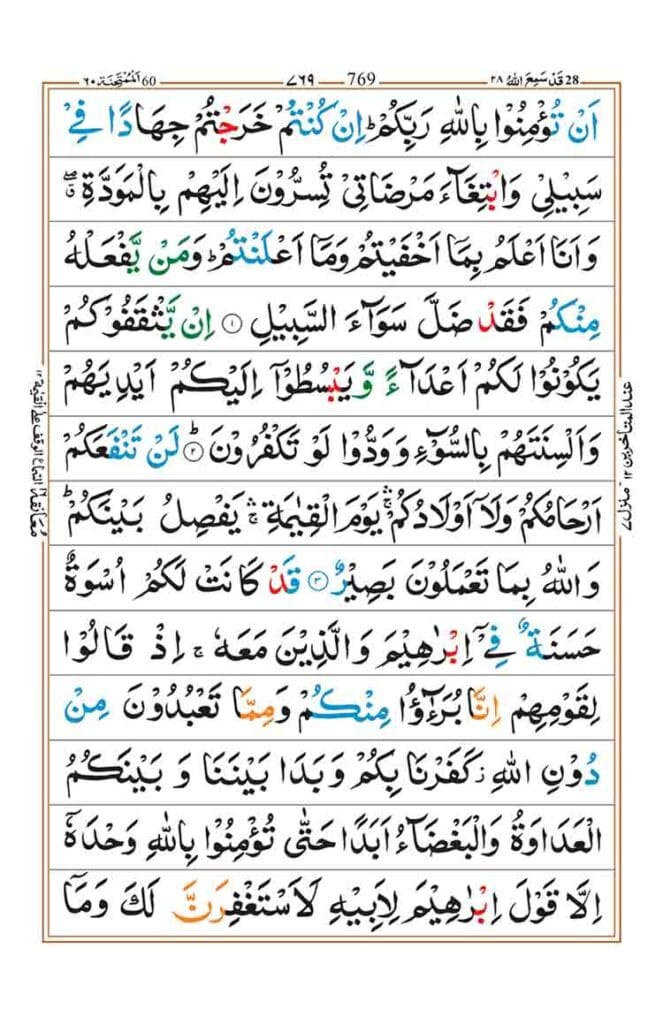 28 قَدْ سَمِعَ اللّٰهُ ۲۸
769 ۷۶۹
60 اَلْمُمْتَحِنَة ۶۰
اَنْ تُؤْمِنُوْا بِاللّٰهِ رَبِّكُمْ ؕ اِنْ كُنْتُمْ خَرَجْتُمْ جِهَادًا فِیْ
سَبِیْلِیْ وَابْتِغَآءَ مَرْضَاتِیْ تُسِرُّوْنَ اِلَیْهِمْ بِالْمَوَدَّةِ ۖ ق
وَاَنَا اَعْلَمُ بِمَاۤ اَخْفَیْتُمْ وَمَاۤ اَعْلَنْتُمْ ؕ وَمَنْ یَّفْعَلْهُ
مِنْكُمْ فَقَدْ ضَلَّ سَوَآءَ السَّبِیْلِ ۝۱ اِنْ یَّثْقَفُوْكُمْ
یَكُوْنُوْا لَكُمْ اَعْدَآءً وَّ یَبْسُطُوْۤا اِلَیْكُمْ اَیْدِیَهُمْ
وَاَلْسِنَتَهُمْ بِالسُّوْٓءِ وَوَدُّوْا لَوْ تَكْفُرُوْنَ ۝۲ؕ لَنْ تَنْفَعَكُمْ
اَرْحَامُكُمْ وَلَاۤ اَوْلَادُكُمْ ۛۚ یَوْمَ الْقِیٰمَةِ ۛۚ یَفْصِلُ بَیْنَكُمْ ؕ
وَاللّٰهُ بِمَا تَعْمَلُوْنَ بَصِیْرٌ ۝۳ قَدْ كَانَتْ لَكُمْ اُسْوَةٌ
حَسَنَةٌ فِیْۤ اِبْرٰهِیْمَ وَالَّذِیْنَ مَعَهٗ ۚ اِذْ قَالُوْا
لِقَوْمِهِمْ اِنَّا بُرَءٰٓؤُا مِنْكُمْ وَمِمَّا تَعْبُدُوْنَ مِنْ
دُوْنِ اللّٰهِ ز كَفَرْنَا بِكُمْ وَبَدَا بَیْنَنَا وَ بَیْنَكُمُ
الْعَدَاوَةُ وَالْبَغْضَآءُ اَبَدًا حَتّٰى تُؤْمِنُوْا بِاللّٰهِ وَحْدَهٗۤ
اِلَّا قَوْلَ اِبْرٰهِیْمَ لِاَبِیْهِ لَاَسْتَغْفِرَنَّ لَكَ وَمَاۤ
عند المتاخرین ۱۲
منزل ۷